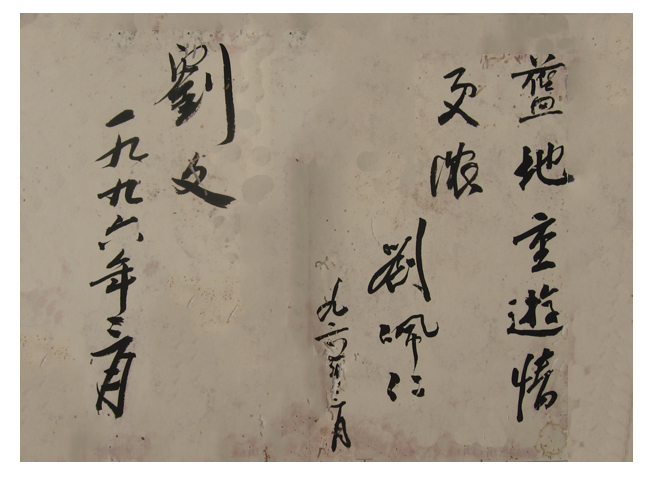 舊地重遊情
更濃
劉珮仁
九六年二月
劉文
一九九六年二月